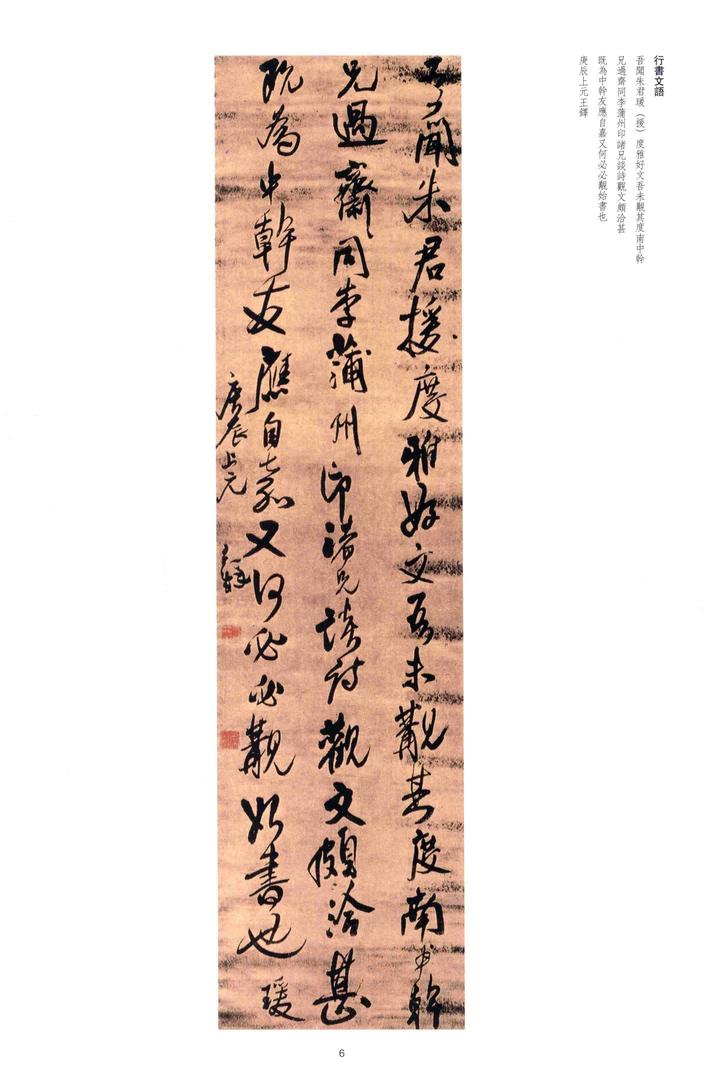 行書文語
吾聞朱君瑗（援）度雅好文吾未覯其度南中幹
兄過齋同李蒲州印諸兄談詩觀文頗洽甚
既為中幹友應自嘉又何必必覯始書也
庚辰上元王鐸
吾聞朱君援度雅好文吾未覯其度南中幹
兄過齋同李蒲州印諸兄談詩觀文頗洽甚
既為中幹友應自嘉又何必必覯始書也 瑗
庚辰上元王鐸
6